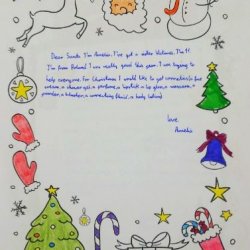 Dear Santa I'm Amelia. I've got a sister Victoria.
I'm from Poland. I was really good this year. I am trying to
help everyone. For Christmas I would like to get
cream, a shower gel, a perfume, a lipstick, a lip gloss, a
powder, a a body lotion
love,
Amelia